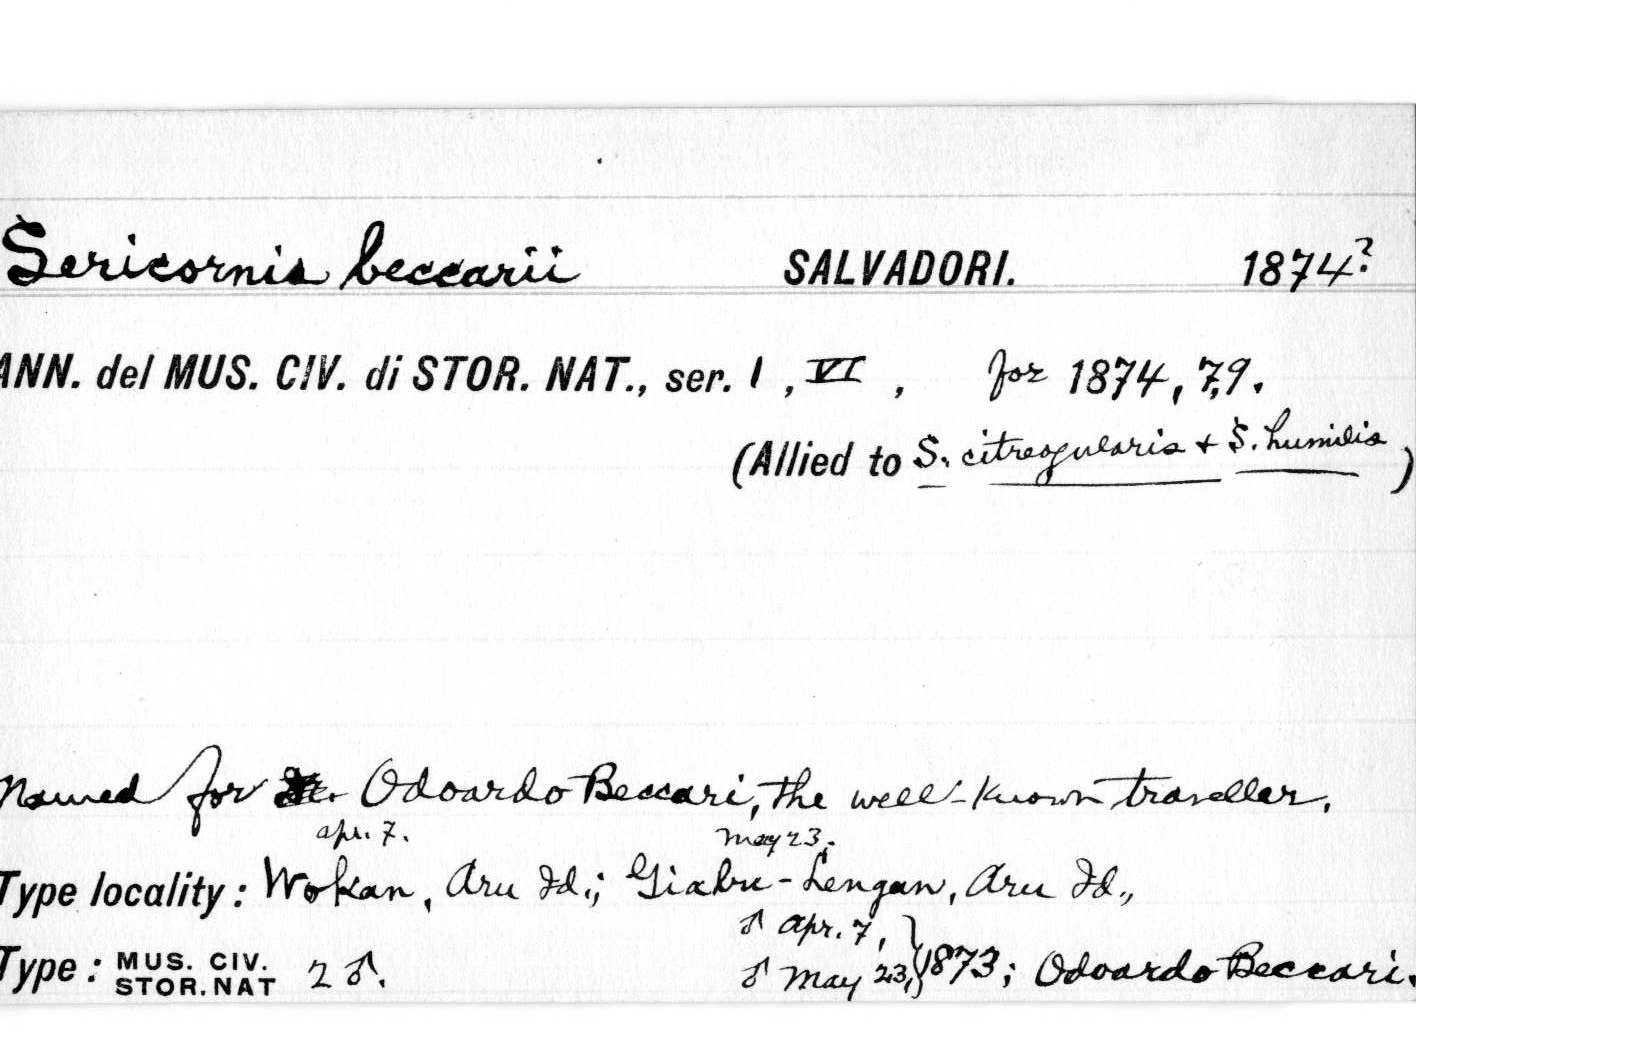 Sericornis beccarii SALVADORI. 1874?
ANN. del MUS. CIV. di STOR. NAT., ser. 1, VI, for 1874, 79.
(Allied to S. citreogularis + S. humilis)
Named for Odoardo Beccari, the well-known traveller.
apr. 7. May 23.
Type locality: Wokan, Aru Id.; Giabu-Lengan, Aru Id.,
♂ apr. 7,
Type: MUS. CIV. STOR. NAT 2 ♂. ♂ May 23, } 1873; Odoardo Beccari.